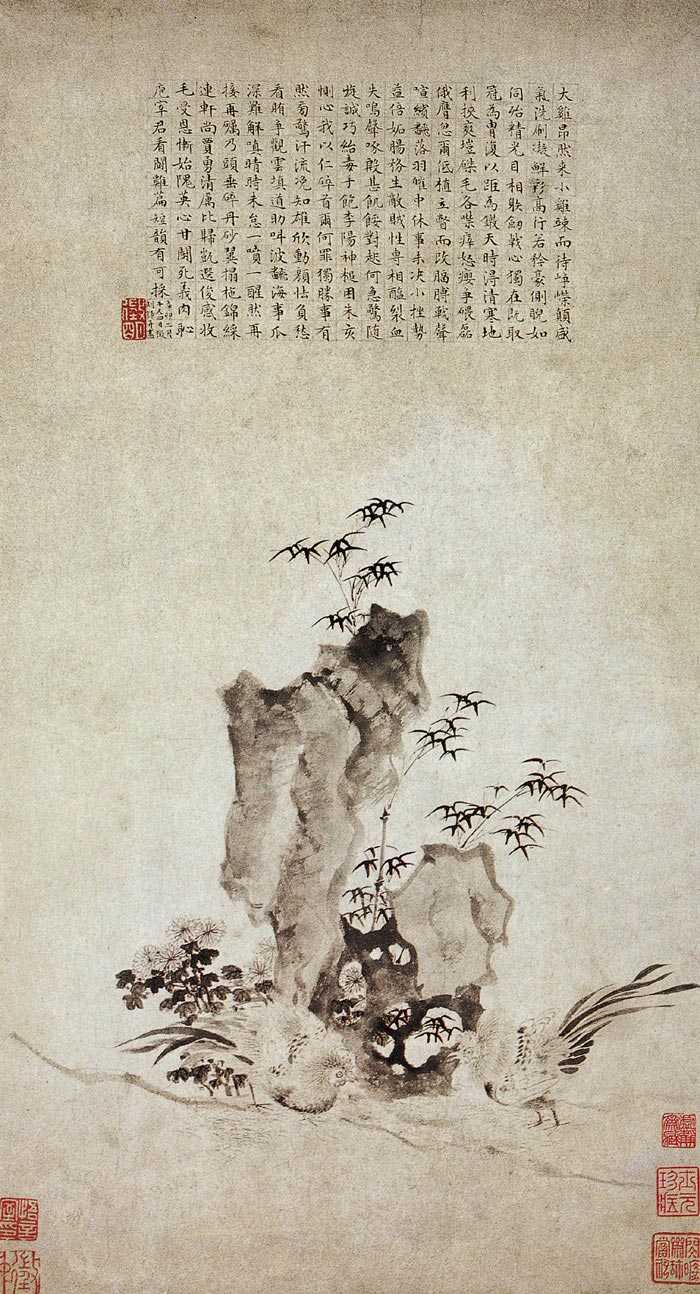 大雞昂然来小雞竦而待崢嶸顛盛
氣洗刷凝鮮彩高行若矜豪側睨如
伺殆精光目相射劍戟心獨在既取
冠為胄復以距為鐓天時得清寒地
利挾爽塏磔毛各噤痒怒癭爭碨磊
俄膺忽爾低植立瞥而改腷膊戰聲
喧繽翻落羽皠中休事未决小挫勢
益倍妬腸務生敵賊性專相醢裂血
失鳴聲啄殷甚飢餒對起何急驚隨
旋誠巧紿毒手飽李陽神槌困朱亥
惻心我以仁碎首爾何罪獨勝事有
然旁驚汗流浼知雄欣動顏怯負愁
看賄爭觀雲填道助叫波翻海事爪
深難解嗔睛時未怠一噴一醒然再
接再礪乃頭垂碎丹砂翼搨拖錦綵
連軒尚賈勇清厲比歸凱選俊感收
毛受恩慚始隗英心甘鬭死義肉恥
庖宰君看鬭雞篇短韻有可採